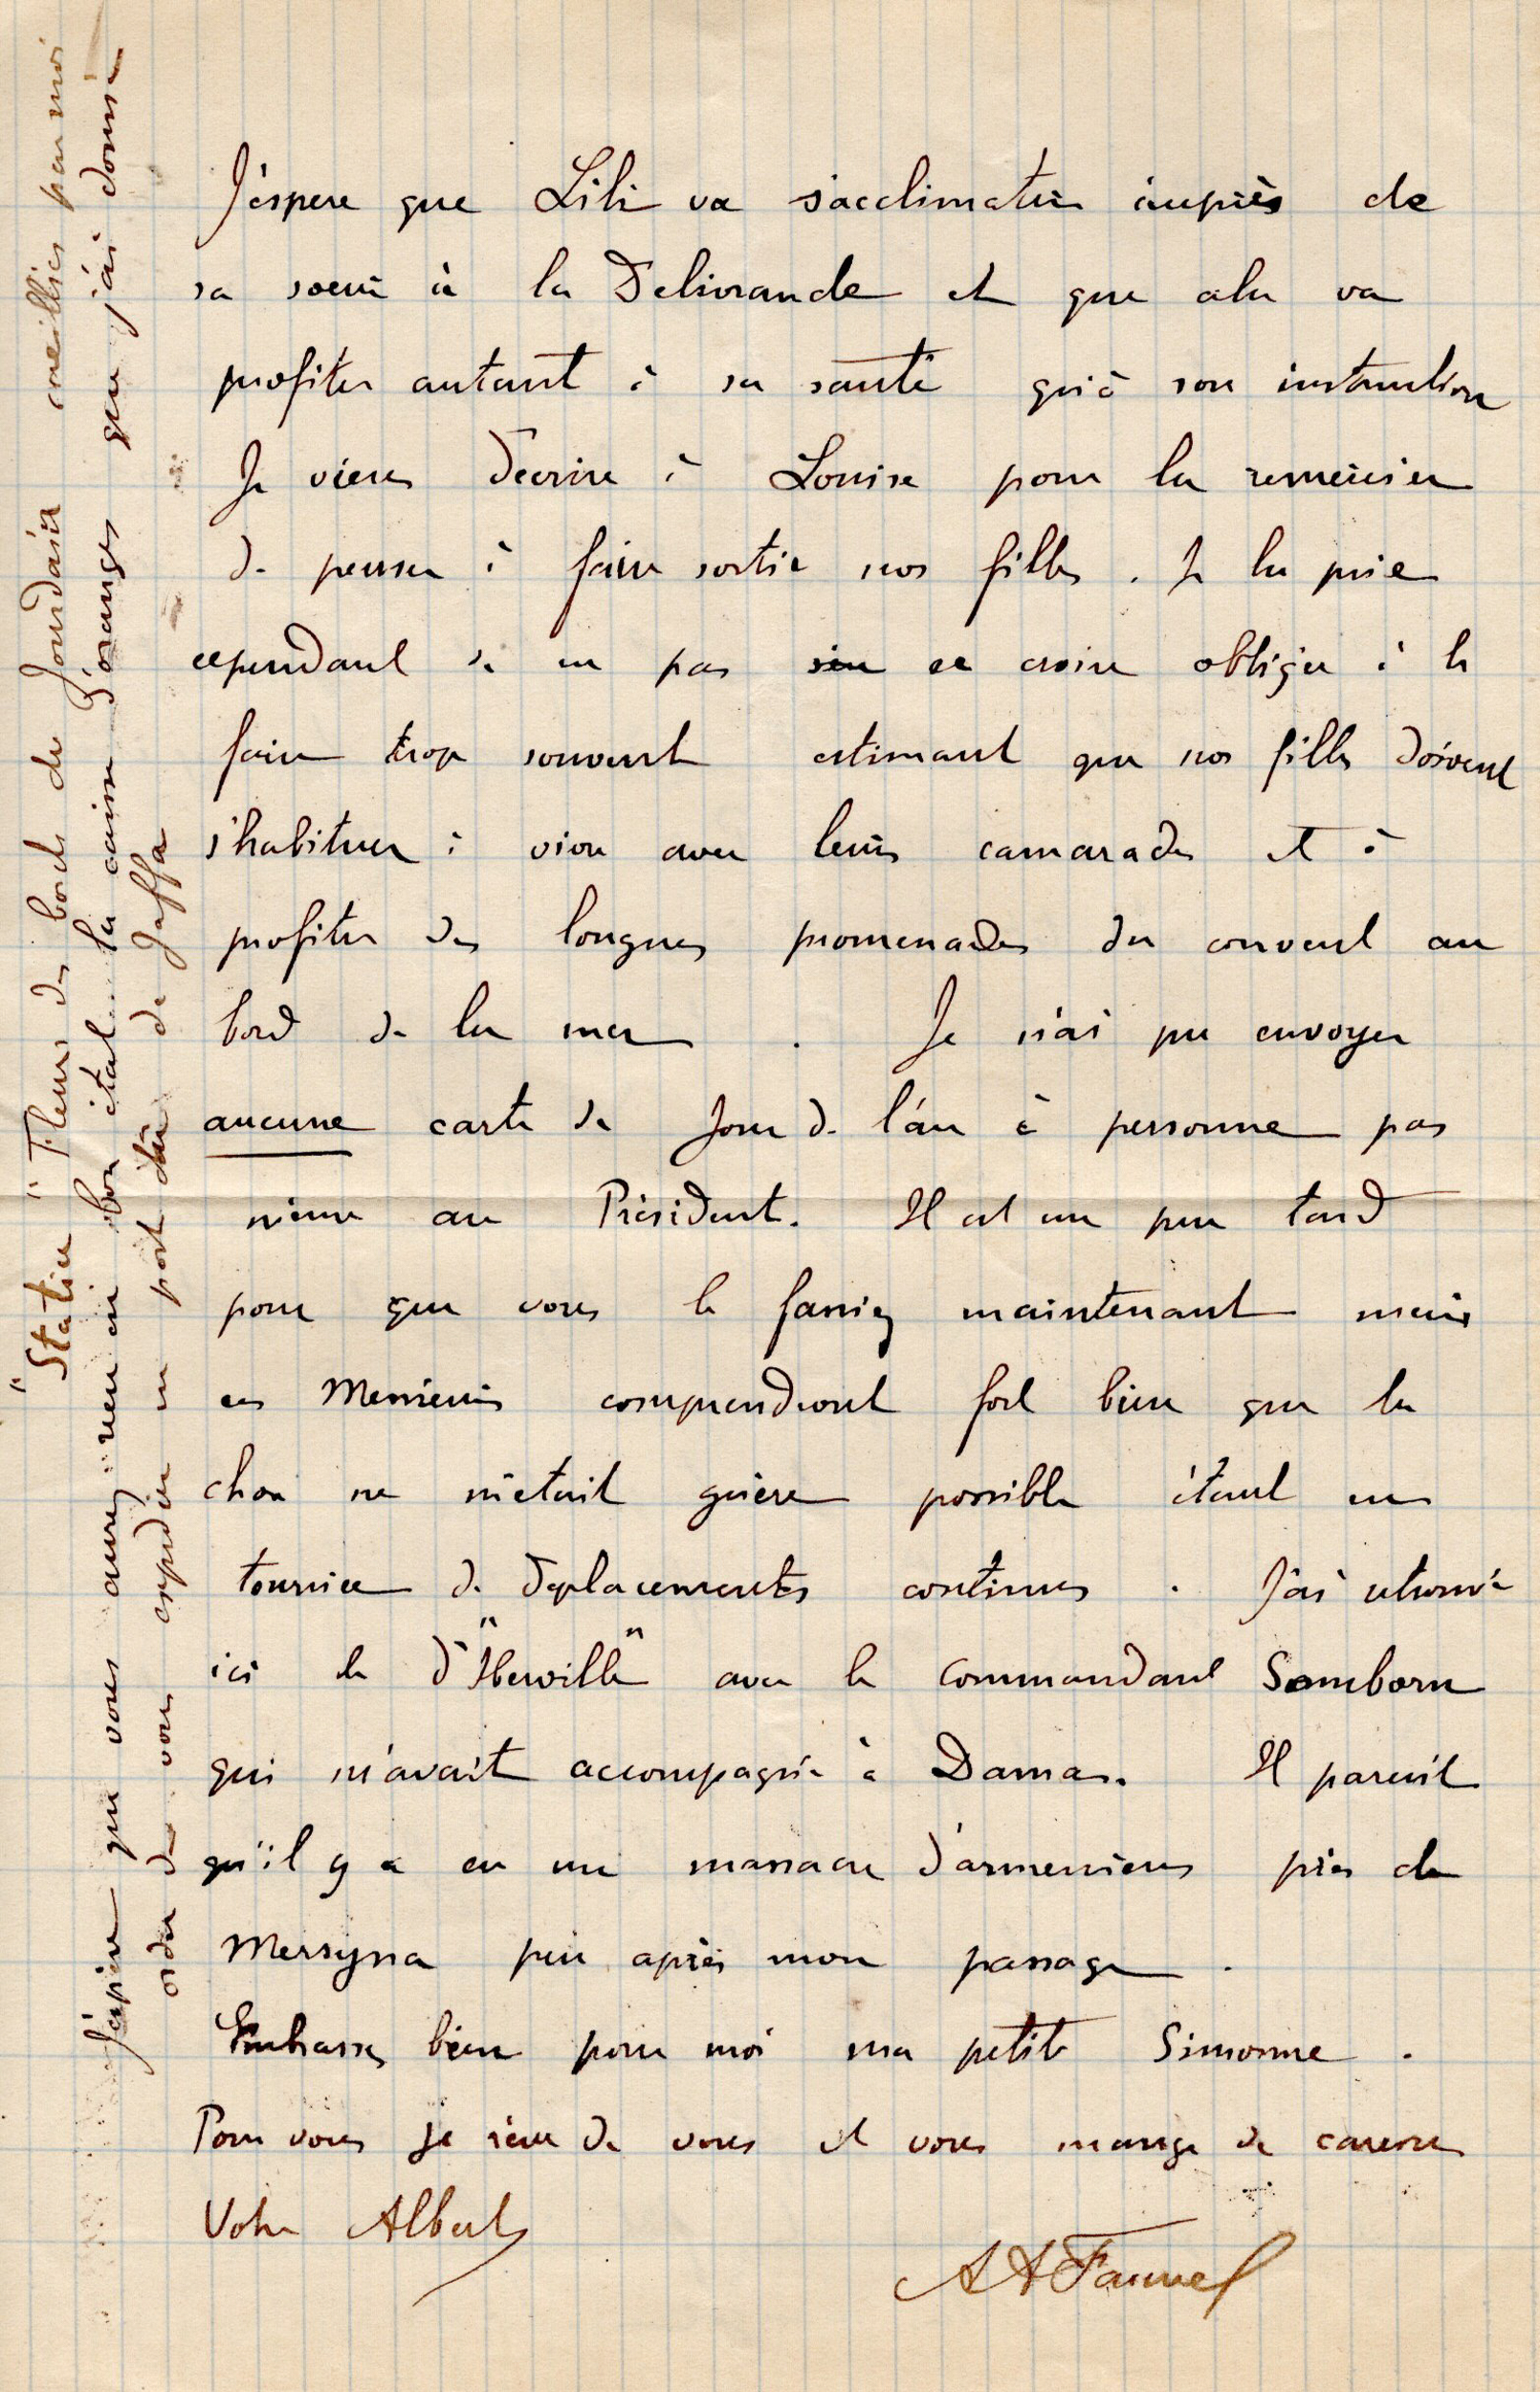 J'espere que Lili va s'acclimater auprès de
sa soeur à la Delivrande et que cela va
profiter autant à sa santé qu'à son instruction
Je viens d'ecrire à Louise pour la remercier
de penser à faire sortir nos filles. Je la prie
cependant de ne pas se croire obligée à le
faire trop souvent estimant que nos filles doivent
s'habituer à vivre avec leurs camarades et à
profiter des longues promenades du couvent au
bord de la mer. Je n'ai pu envoyer
aucune carte de Jour de l'an à personne pas
même au Président. Il est un peu tard
pour que vous le fassiez maintenant mais
ces Messieurs comprendront fort bien que la
chose ne m'etait guère possible étant en
tournée de deplacements continus. J'ai retrouvé
ici le d'"Iberville" avec le Commandant Somborn
qui m'avait accompagné à Damas. Il parait
qu'il y a eu un massacre d'armeniens près de
Mersyna peu après mon passage.
Embrassez bien pour moi ma petite Simonne.
Pour vous je rêve de vous et vous mange de caresses
Votre Albert
A A Fauvel
"Statice" Fleurs des bords du Jourdain cueillies par moi
J'espère que vous aurez reçu en bon état la caisse d'oranges que j'ai donné
ordre de vous expédier en port dû de Jaffa